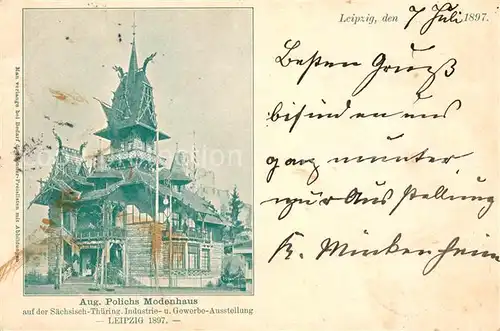 Leipzig, den 7 Juli 1897.
Besten Gruß
befinden uns
ganz munter,
zur Ausstellung
Aug. Polichs Modenhaus
auf der Sächsisch-Thüring. Industrie- u. Gewerbe-Ausstellung
— LEIPZIG 1897. —
Man verlange bei Bedarf
mit Abbildungen